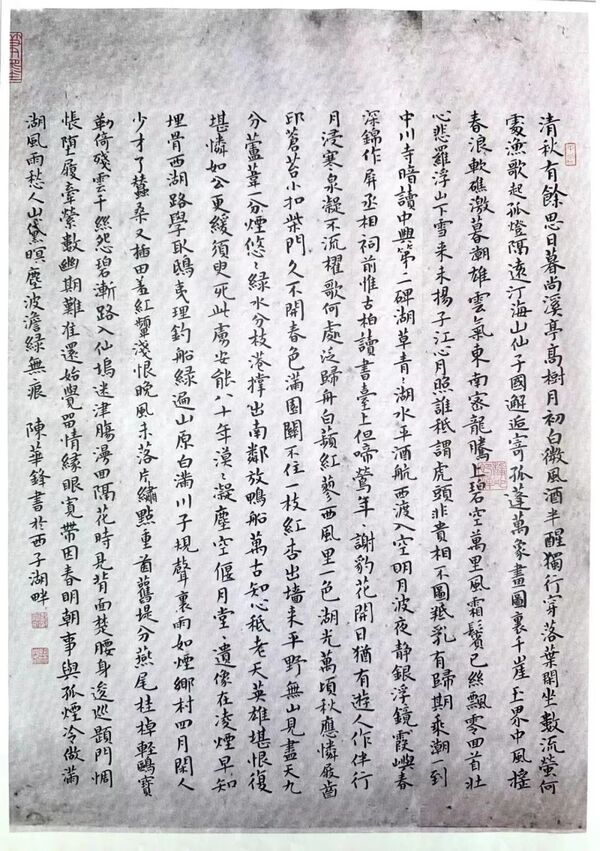 清秋有餘思日暮尚溪亭高樹月初白微風酒半醒獨行穿落葉閑坐數流螢何
處漁歌起孤燈隔遠汀海山仙子國邂逅寄孤蓬萬象畫圖裏千崖玉界中風搖
春浪軟礁激暮潮雄雲氣東南密龍騰上碧空萬里風霜鬢已絲飄零回首壯
心悲羅浮山下雪来未揚子江心月照誰秪謂虎頭非貴相不圖羝乳有歸期乘潮一到
中川寺暗讀中興第二碑湖草青〻湖水平酒航西渡入空明月波夜静銀浮鏡霞嶼春
深錦作屏丞相祠前惟古柏讀書臺上但啼鶯年〻謝豹花開日猶有遊人作伴行
月浸寒泉凝不流櫂歌何處泛歸舟白蘋紅蓼西風里一色湖光萬頃秋應憐屐齒
印蒼苔小扣柴門久不開春色滿園關不住一枝紅杏出墻来平野無山見盡天九
分蘆葦一分煙悠〻綠水分枝港撑出南鄰放鴨船萬古知心秪老天英雄堪恨復
堪憐如公更緩須臾死此虜安能八十年漠〻凝塵空偃月堂〻遺像在凌煙早知
埋骨西湖路學取鴟夷理釣船綠遍山原白滿川子規聲裏雨如煙鄉村四月閑人
少才了蠶桑又插田羞紅顰淺恨晚風未落片繡點重茵舊堤分燕尾桂棹輕鷗寶
勒倚殘雲千絲怨碧漸路入仙塢迷津腸漫回隔花時見背面楚腰身逡巡題門惆
悵墮履牽縈數幽期難准還始覺留情緣眼寬帶因春明朝事與孤煙冷做滿
湖風雨愁人山黛暝塵波澹綠無痕 陳華鋒書於西子湖畔